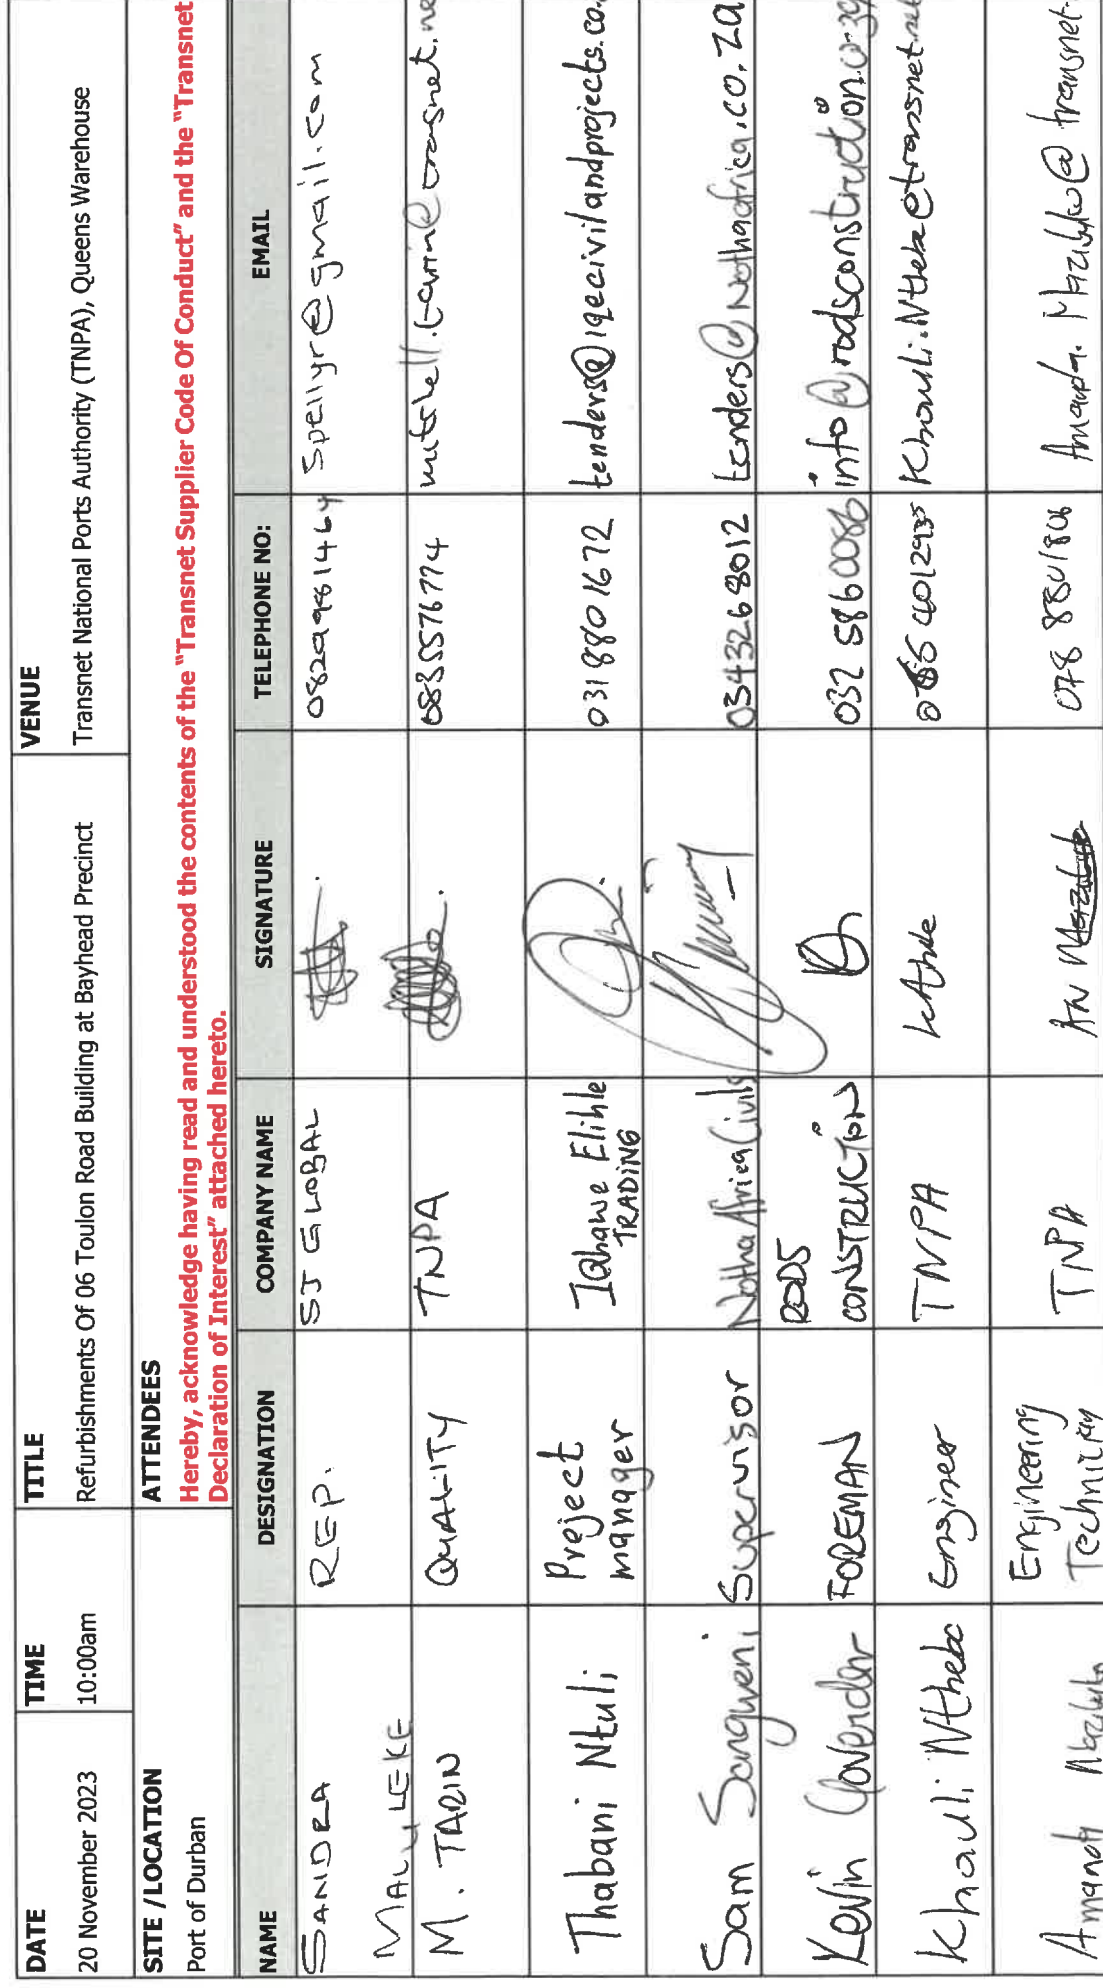 DATE TIME TITLE VENUE
20 November 2023 10:00am Refurbishments Of 06 Toulon Road Building at Bayhead Precinct Transnet National Ports Authority (TNPA), Queens Warehouse
SITE /LOCATION ATTENDEES
Port of Durban Hereby, acknowledge having read and understood the contents of the "Transnet Supplier Code Of Conduct" and the "Transnet
Declaration of Interest" attached hereto.
NAME DESIGNATION COMPANY NAME SIGNATURE TELEPHONE NO: EMAIL
SANDRA REP. SJ GLOBAL spellyr@gmail.com
MALULEKE
M. TARIN QUALITY TNPA 0835576774
Thabani Ntuli Project manager Iqhawe Elihle TRADING 031 880 1672 tenders@iqecivilandprojects.co.
Sam Sangweni Supervisor Notha Africa Civils 0343268012 tenders@nothaafrica.co.za
Kevin Govender FOREMAN RODS CONSTRUCTION 032 586 0086 info@rodsconstruction.co.za
Khauli Ntheke Engineer TNPA
Amanda Engineering TNPA 078 8801806